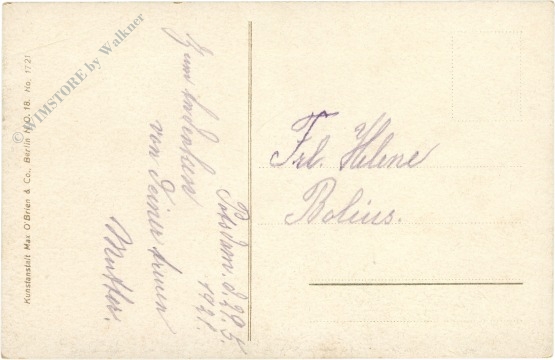 Zum Andenken
von Deiner treuen
Mutter.
Potsdam. d. 29.5.
1921.
Frl. Helene
Bolius.
Kunstanstalt Max O'Brien & Co., Berlin N.O. 18. No. 1721
© WIMSTORE by Walkner